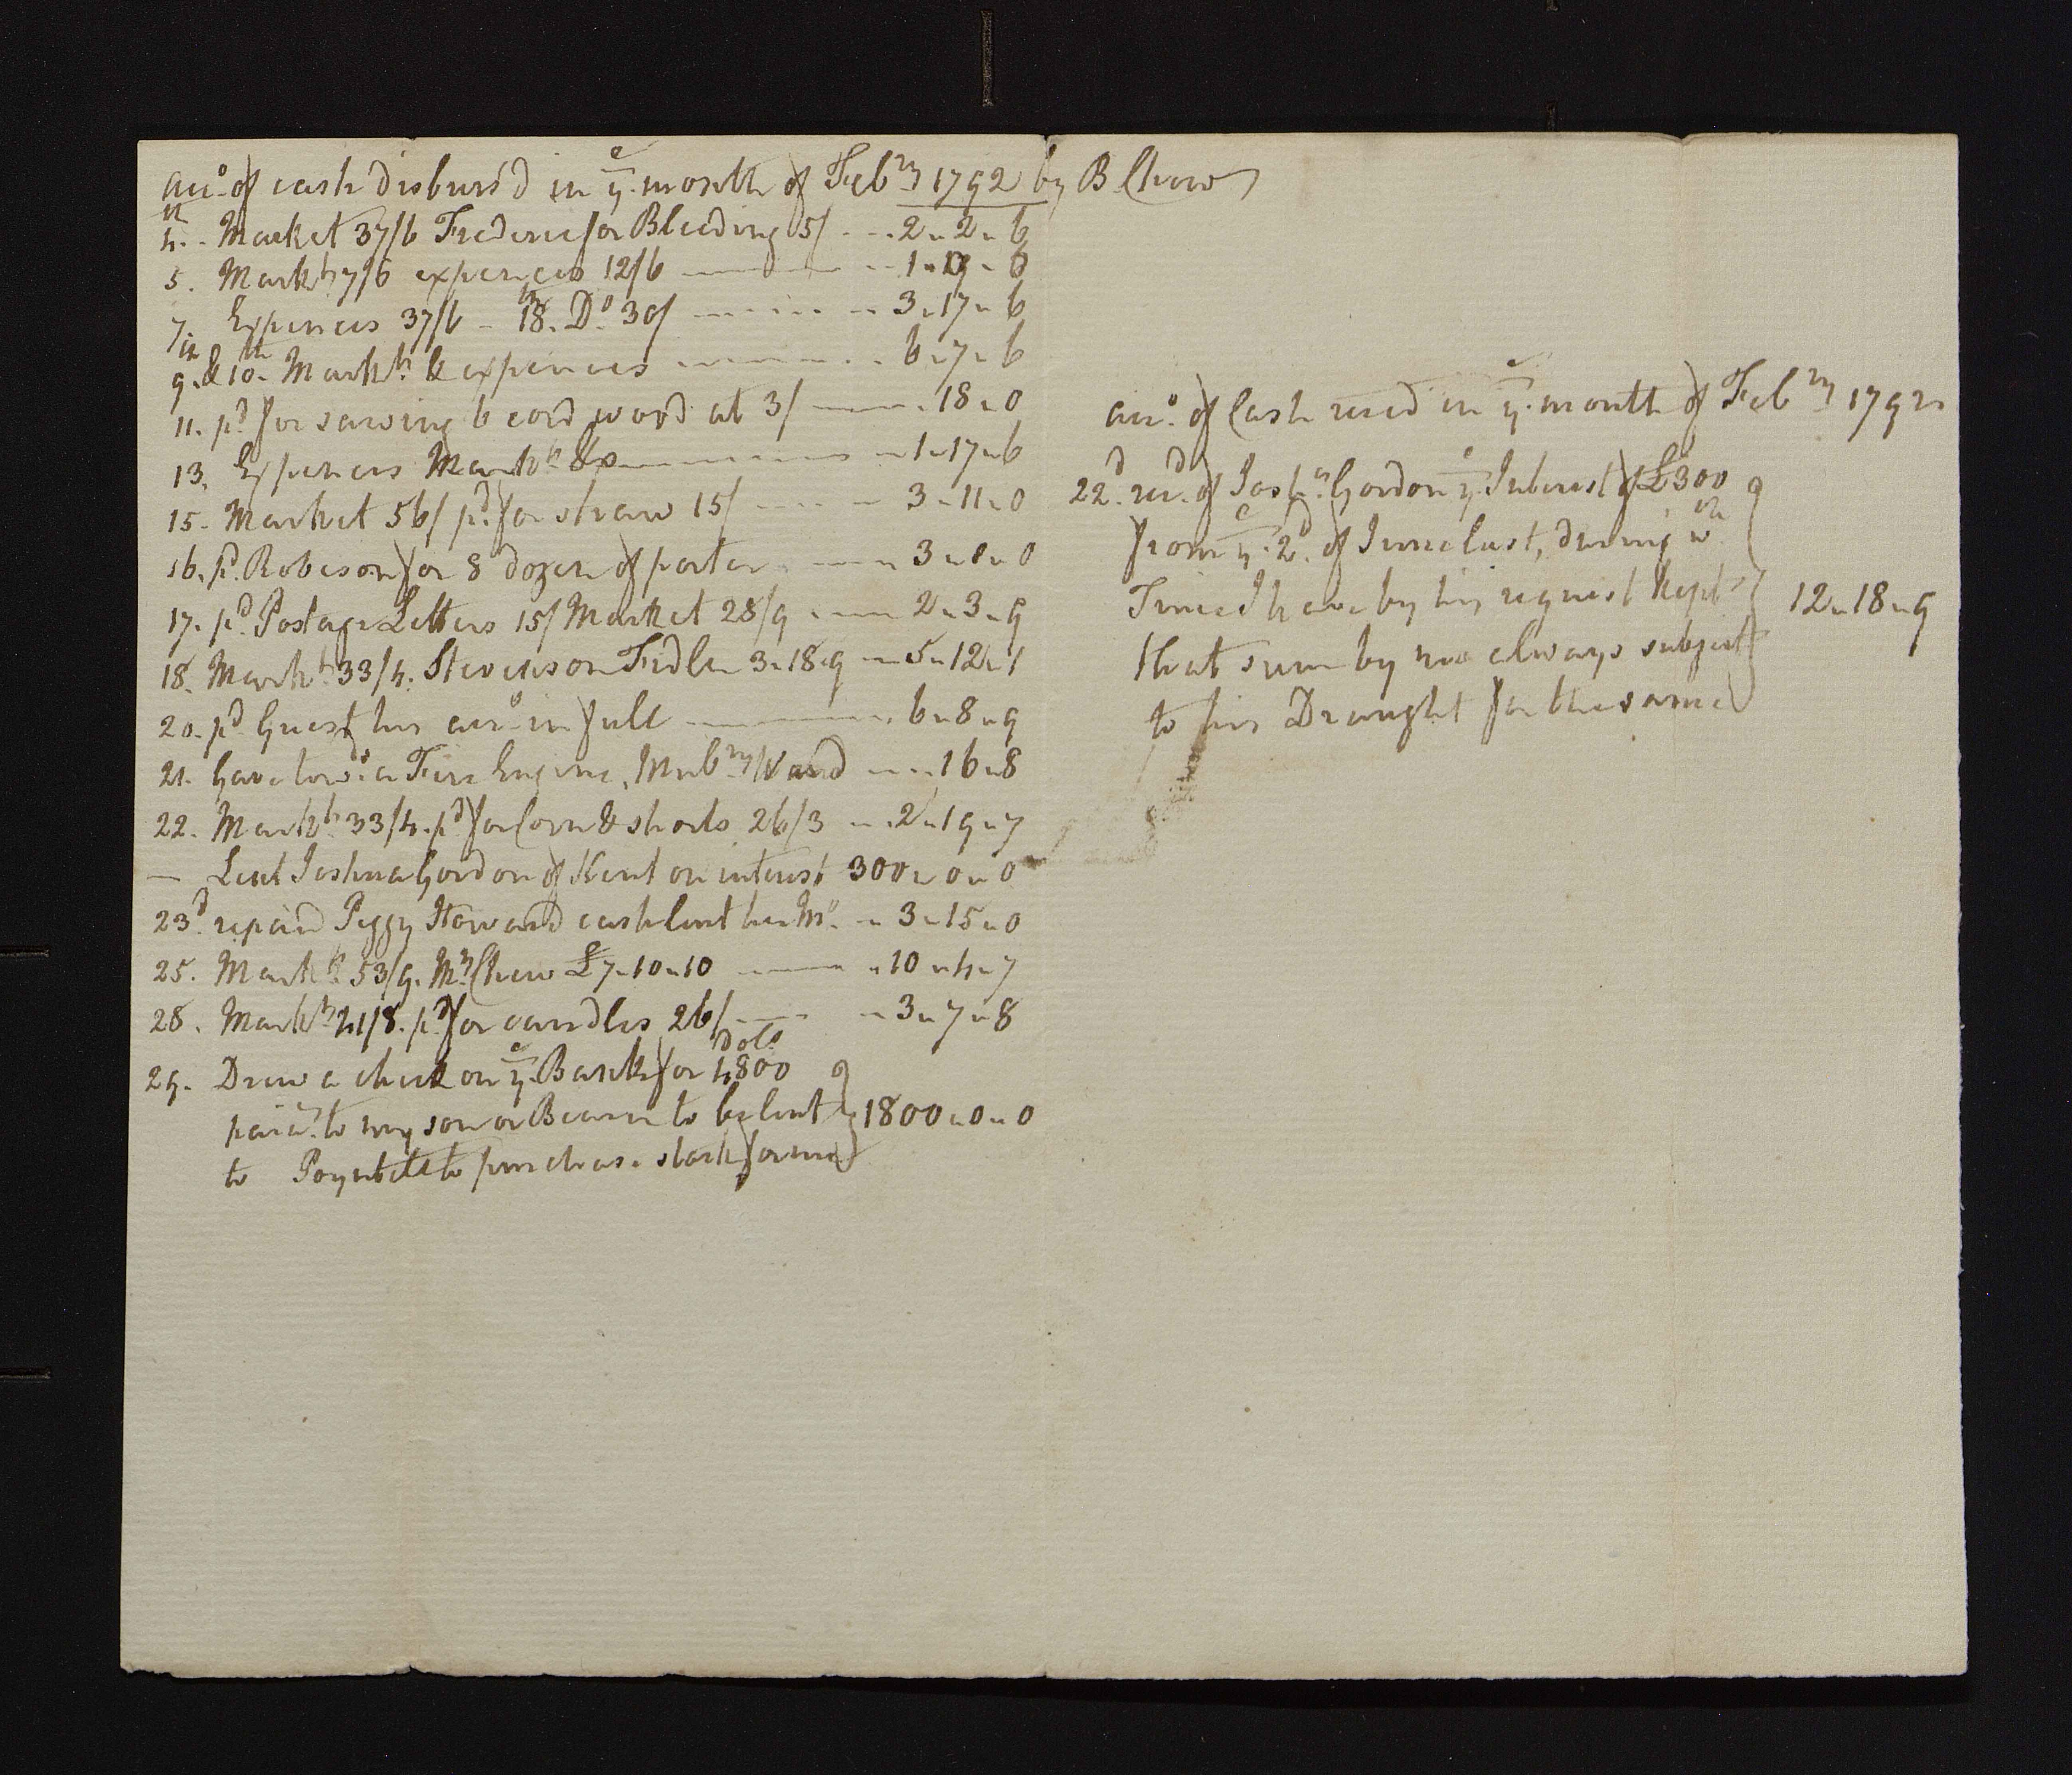 acco. of cash disburs'd in ye. month of Febry 1792 by B Chew
4th. - Market 37/6 Frederic for Bleeding 5/ - - - 2 " 2 " 6
5. Markt. 7/6 expences 12/6 - - - 1 " " 0
7. Expences 37/6 - 18th. Do. 30/ - - - 3 " 17 " 6
9th. & 10th. Markt. & expences - - - 6 " 7 " 6
11. pd. for sawing 6 cord wood at 3/ - - - 18 " 0
13. Expences Markt. &c - - - 1 " 17 " 6
15. Market 56/ pd. for straw 15/ - - - 3 " 11 " 0
16. pd. Robeson for 8 dozen of porter - - - 3 " 0 " 0
17. pd. Postage Letters 15/ Market 28/9 - - - 2 " 3 " 9
18. Markt. 33/4. Stevenson 3 " 18 " 9 - - 5 " 12 " 1
20. pd. Guest his acco. in full - - - 6 " 8 " 9
21. Gave towds. a Fire Engine, Mulby Ward - - - 16 " 8
22. Markt. 33/4. pd. for Corn & shorts 26/3 - - 2 " 19 " 7
— Lent Joshua Gordon of Kent on interest 300 " 0 " 0
23d. repaid Peggy Howard cash lent her Mo. - - 3 " 15 " 0
25. Markt. 53/9. Mrs. Chew £7 " 10 " 10 - - - 10 " 4 " 7
28. Markt. 41/8. pd. for candles 26/ - - - 3 " 7 " 8
29. Drew a check on ye. Bank for 4800 dols
to my son or to be lent } 1800 " 0 " 0
to Poyntell to purchase stock for me
acco. of Cash recd in ye. month of Febry 1792
22d. recd. of Josha. Gordon ye. Interest of £300
from ye. 2d. of June last, during wch.
Time I have by his request kept } 12 " 18 " 9
that sum by me always subject
to his Draught for the same